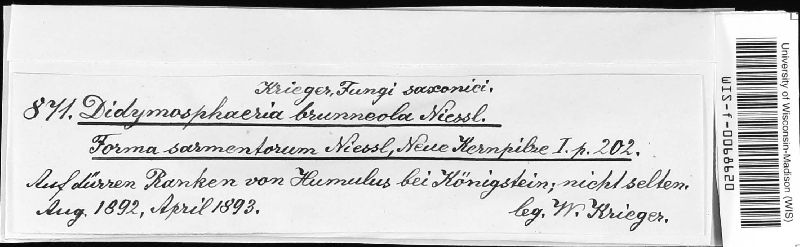 Krieger, Fungi saxonici.
871. Didymosphaeria brunneola Niessl.
Forma sarmentorum Niessl, Neue Kernpilze I. p. 202.
Auf dürren Ranken von Humulus bei Königstein; nicht selten.
Aug. 1892, April 1893. leg. W. Krieger.
University of Wisconsin-Madison (WIS)
WIS-f-0068620